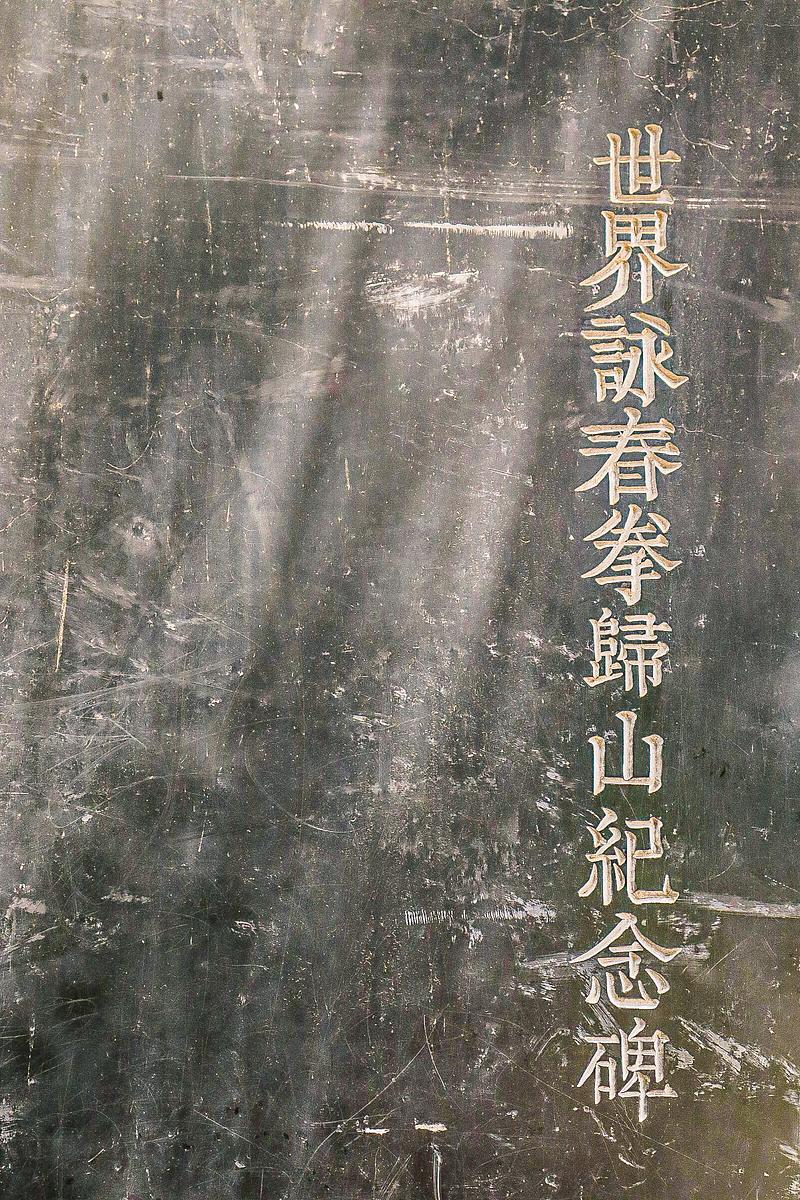 世界詠春拳歸山紀念碑